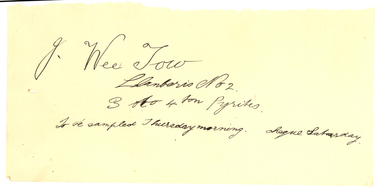 J. Wee Tow
Llanberis No 2.
3 to 4 ton Pyrites.
To be sampled Thursday morning. Saturday.